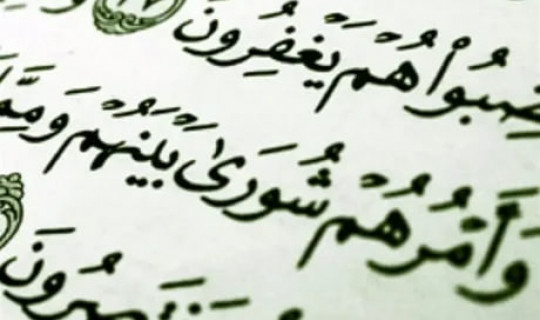 ضِبُواْ هُمْ يَغْفِرُونَ
وَأَمْرُهُمْ شُورَىٰ بَيْنَهُمْ وَمِمَّا